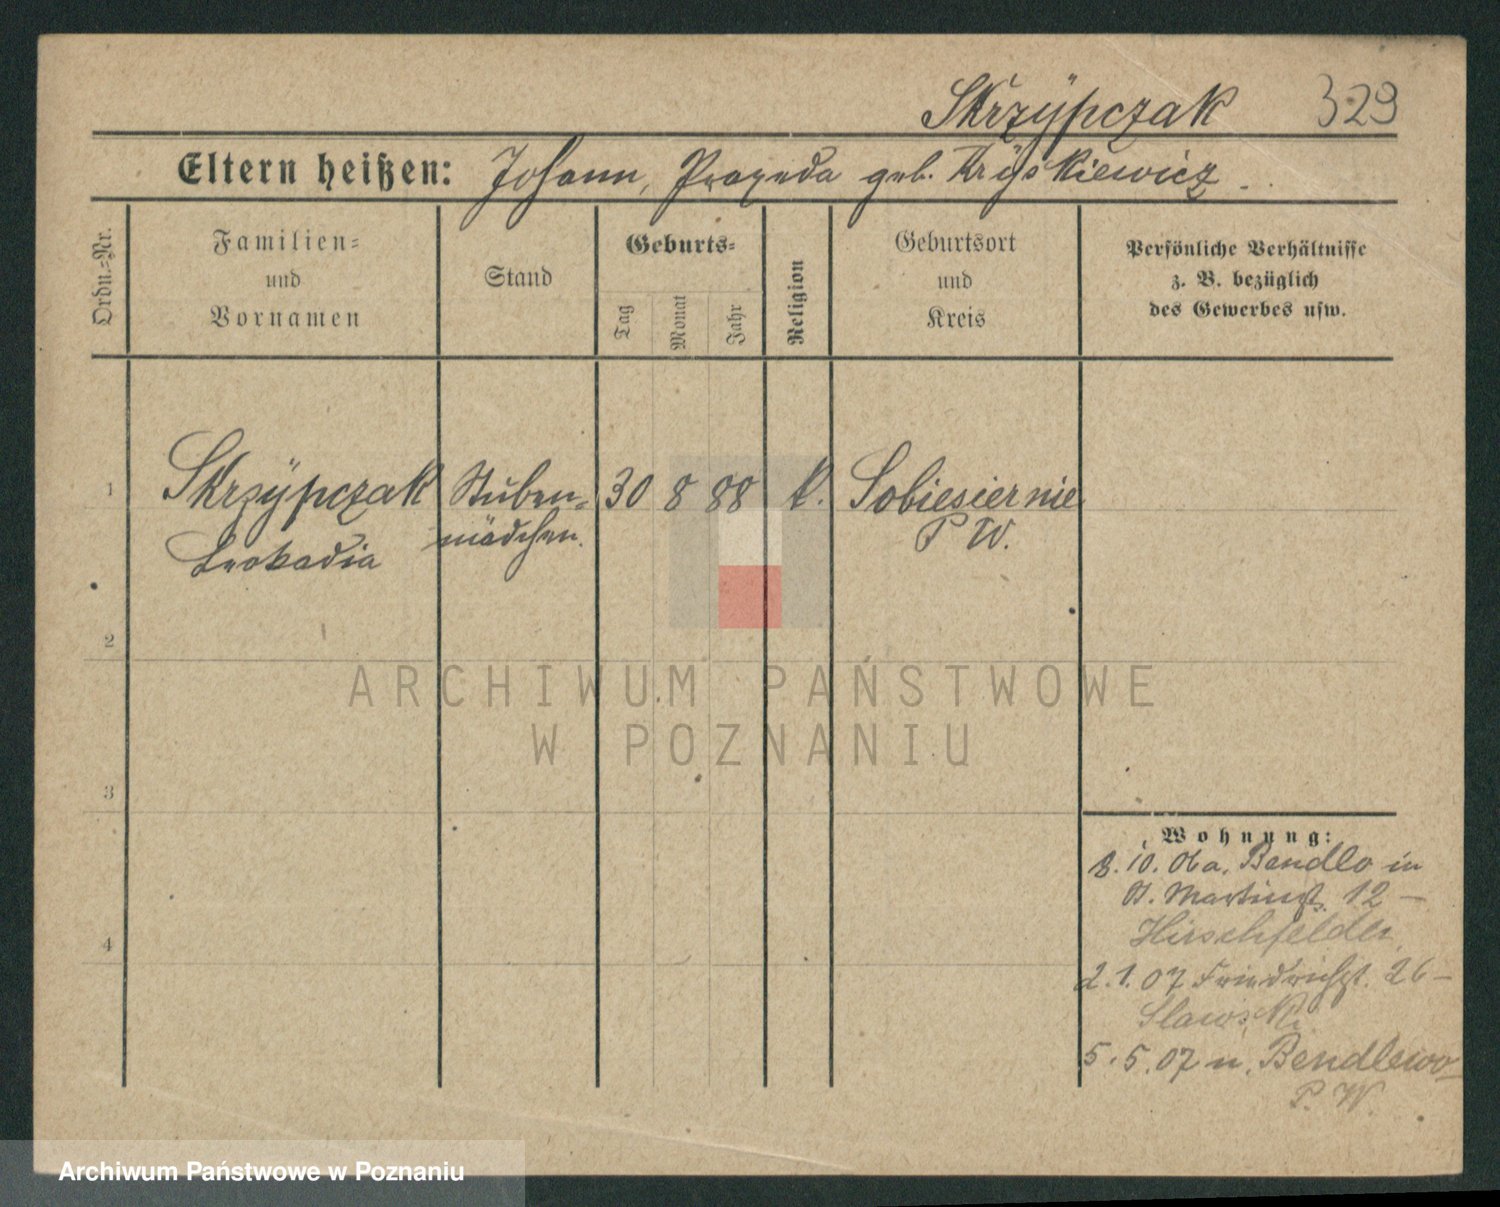 Skrzÿpczak 329
Eltern heißen: Johann, Praxeda geb. Krÿskiewicz
Ordn.-Nr.
Familien-
und
Vornamen
Stand
Geburts-
Tag
Monat
Jahr
Religion
Geburtsort
und
Kreis
Persönliche Verhältnisse
z. B. bezüglich
des Gewerbes usw.
1 Skrzÿpczak Stuben- 30 8 88 k. Sobiesiernie
Leokadia mädchen. P W.
2
3
4
Wohnung:
8. 10. 06 a. Bendlo in
St. Martinst. 12 –
Hirschfelder
2. 1. 07 Friedrichst. 26 –
Slawski
5. 5. 07 n. Bendlewo
P. W.
ARCHIWUM PAŃSTWOWE
W POZNANIU
Archiwum Państwowe w Poznaniu